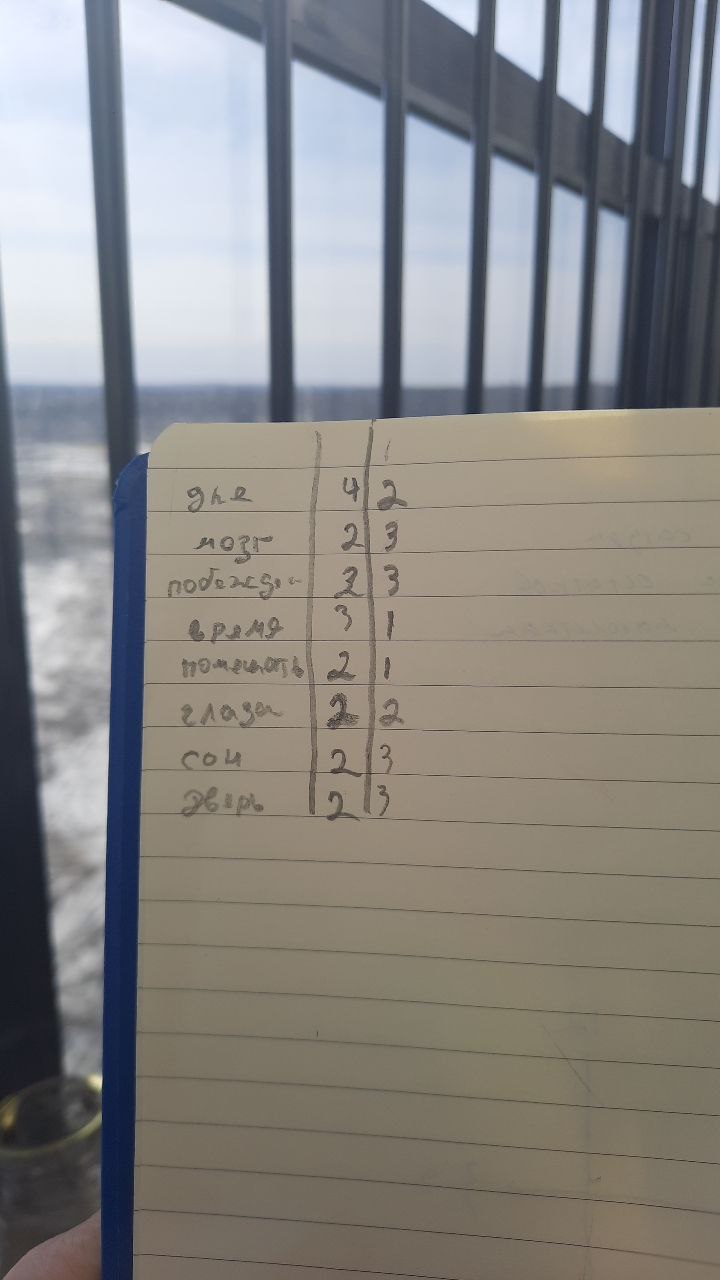 дне 4 2
мозг 2 3
3 3
время 3 1
помешать 2 1
глаза 2 2
сон 2 3
дверь 2 3